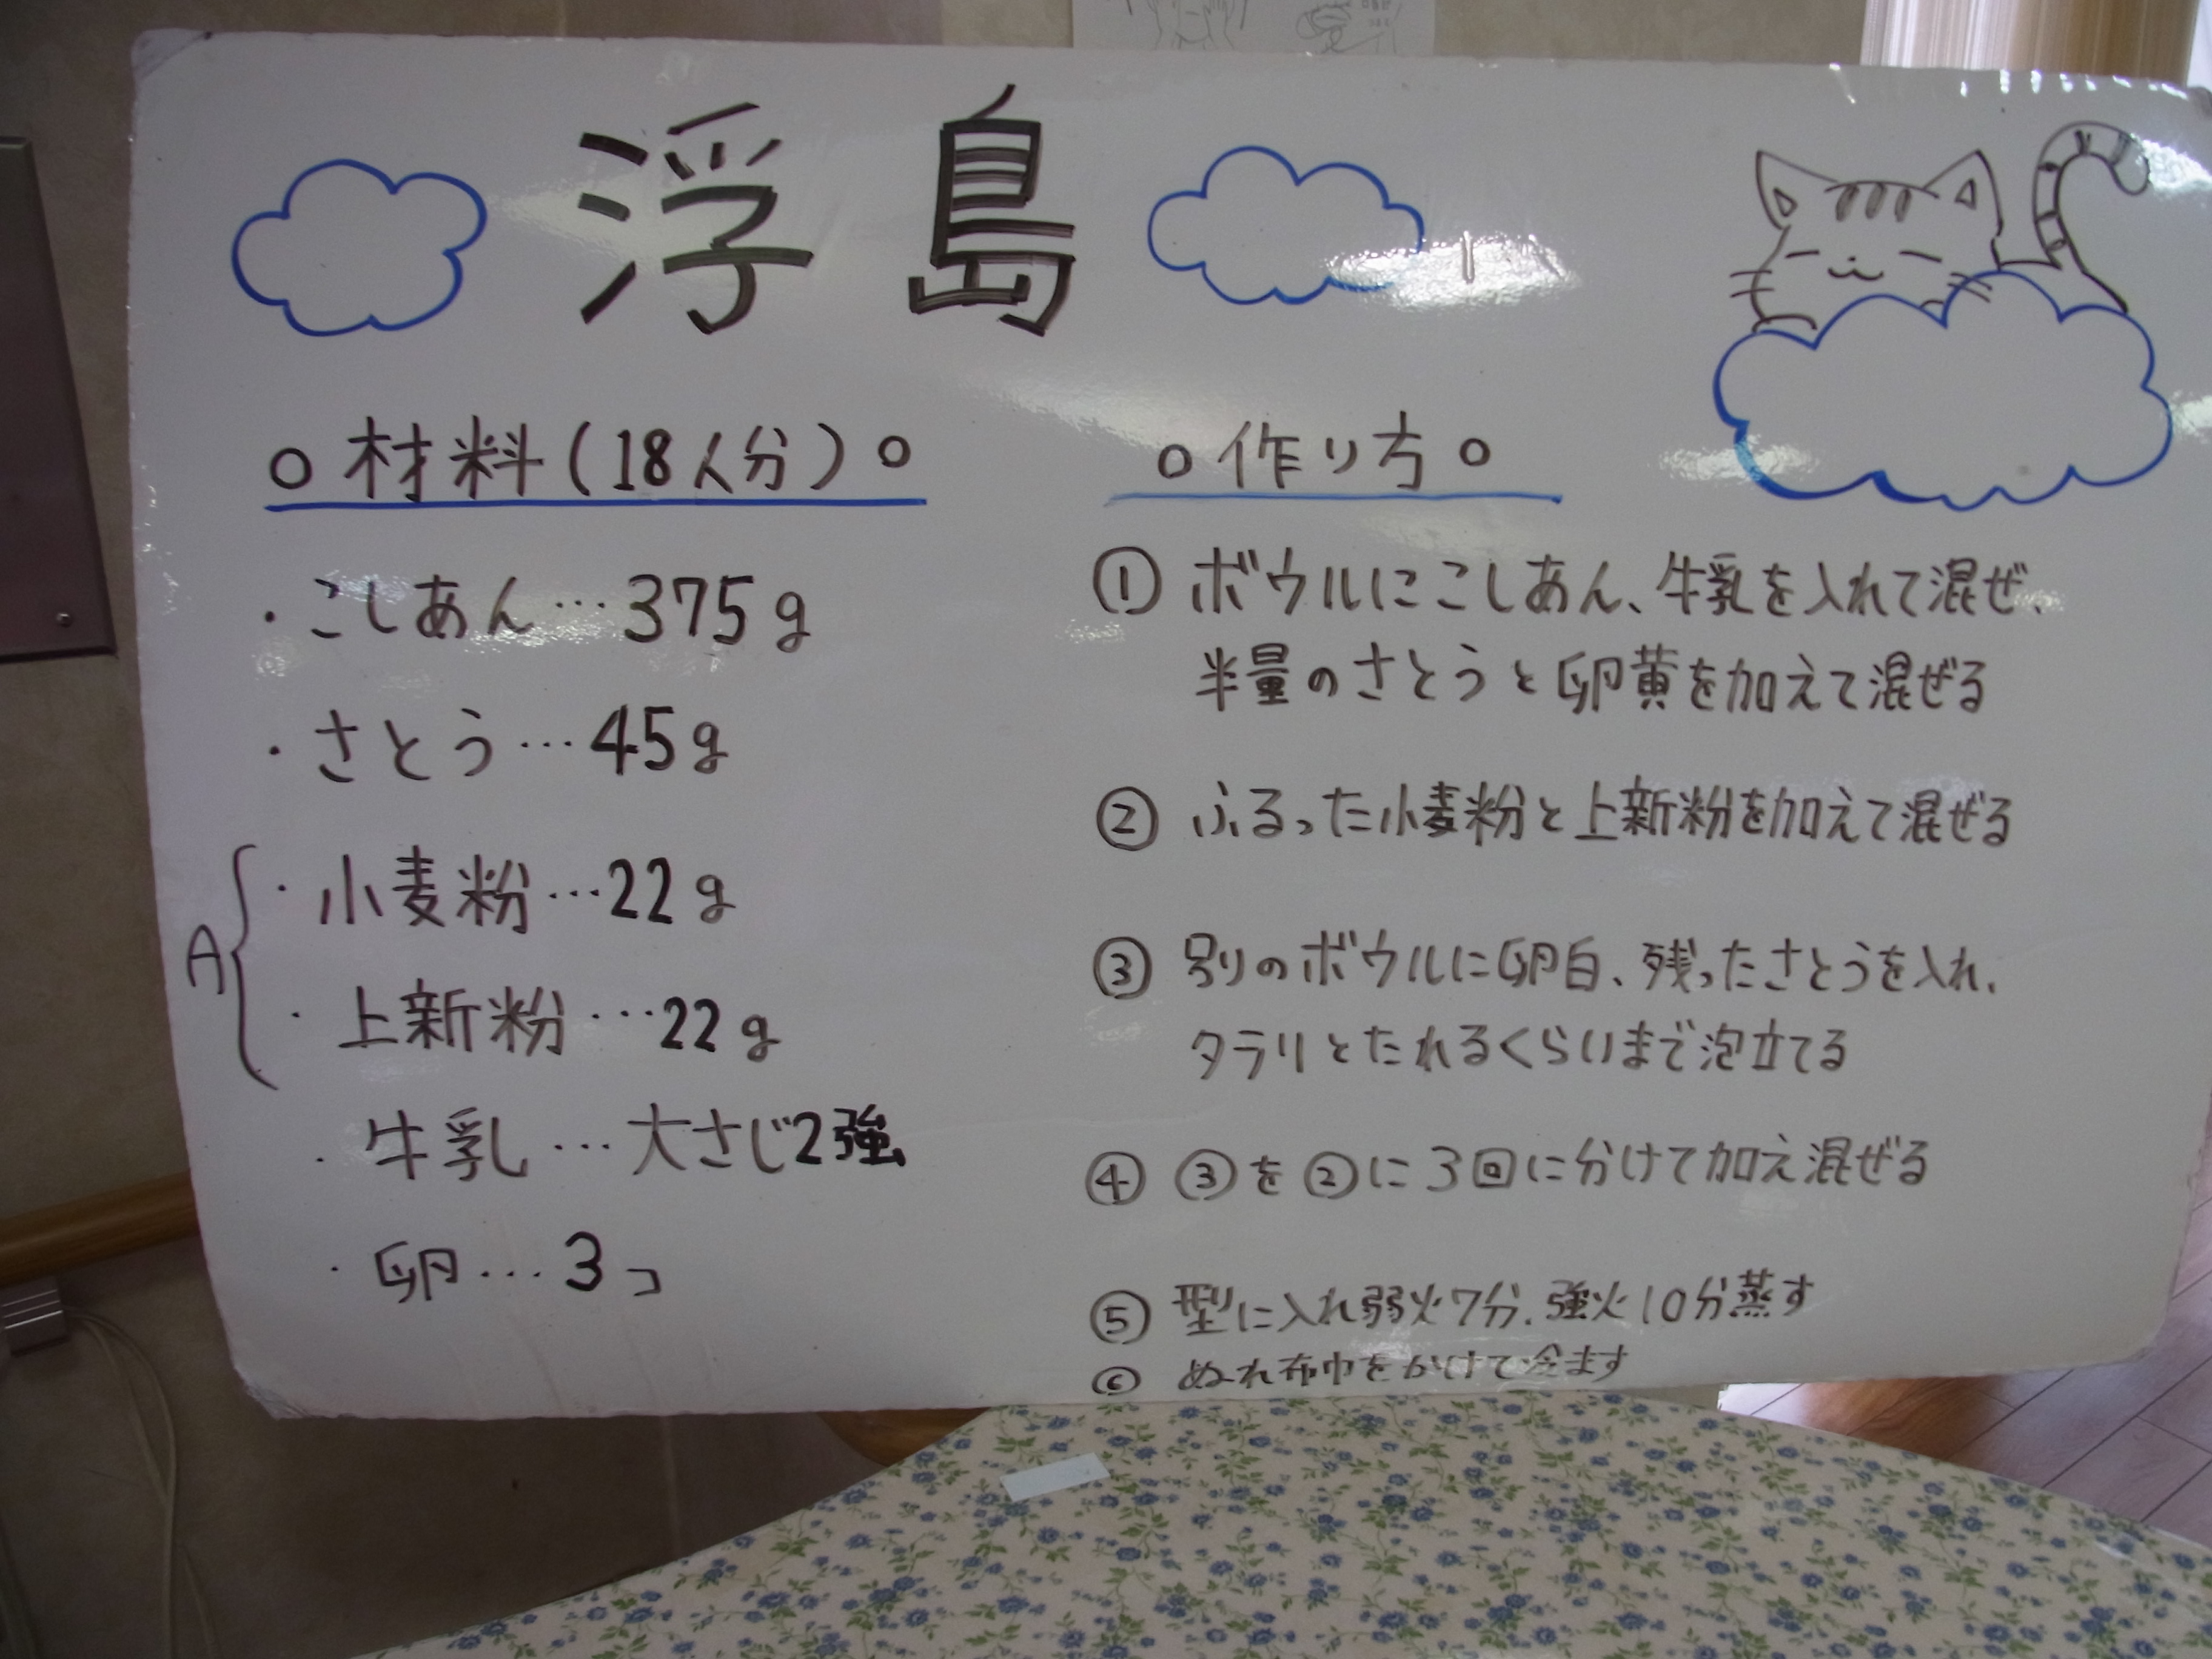 浮島
○材料(18人分)○
・こしあん…375g
・さとう…45g
A
・小麦粉…22g
・上新粉…22g
・牛乳…大さじ2強
・卵…3コ
○作り方○
① ボウルにこしあん、牛乳を入れて混ぜ、
半量のさとうと卵黄を加えて混ぜる
② ふるった小麦粉と上新粉を加えて混ぜる
③ 別のボウルに卵白、残ったさとうを入れ、
タラリとたれるくらいまで泡立てる
④ ③を②に3回に分けて加え混ぜる
⑤ 型に入れ弱火7分、強火10分蒸す
⑥ ぬれ布巾をかけて冷ます